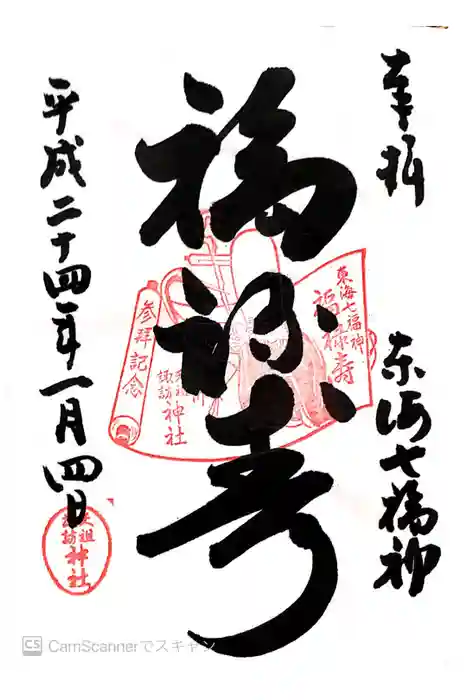 奉拝
東海七福神
福禄寿
平成二十四年一月四日
東海七福神
福禄寿
参拝記念
天祖
諏訪
神社
天祖
諏訪
神社
CS CamScannerでスキャン